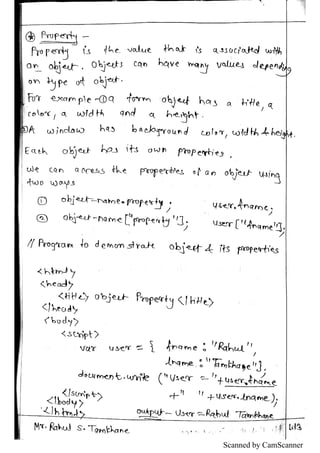 * Property -
Property is the value that is associated with
an object. Objects can have many values depending
on type of object.
For example - ① a form object has a title, a
color, a width and a height.
② A window has background color, width & height.
Each object has its own properties.
We can access the properties of an object using
two ways
① object-name.property ; user.fname;
② object-name["property"]; user["fname"];
// Program to demonstrate object & its properties
<html>
<head>
<title> Object Property </title>
</head>
<body>
<script>
var user = { fname : "Rahul",
lname : "Tambhane"};
document.write ("User = "+user.fname
+" "+user.lname);
</script>
</body>
</html>
output - User = Rahul Tambhane
Mr. Rahul S. Tambhane
Scanned by CamScanner